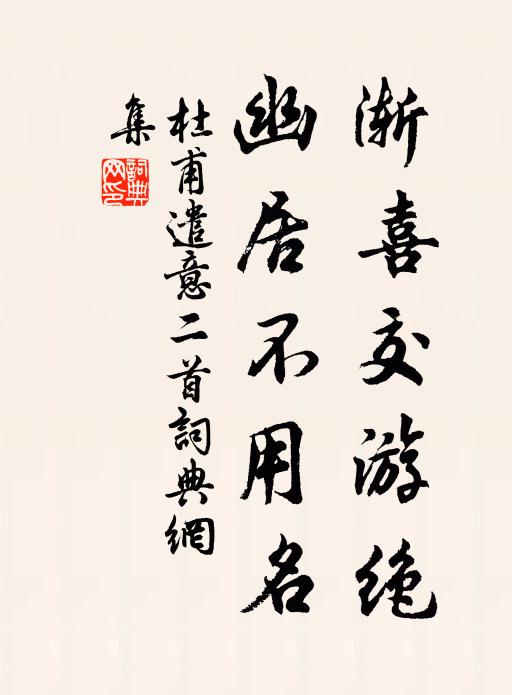 渐喜交游绝
幽居不用名
杜甫遣意二首詞典網
集
詞典網印